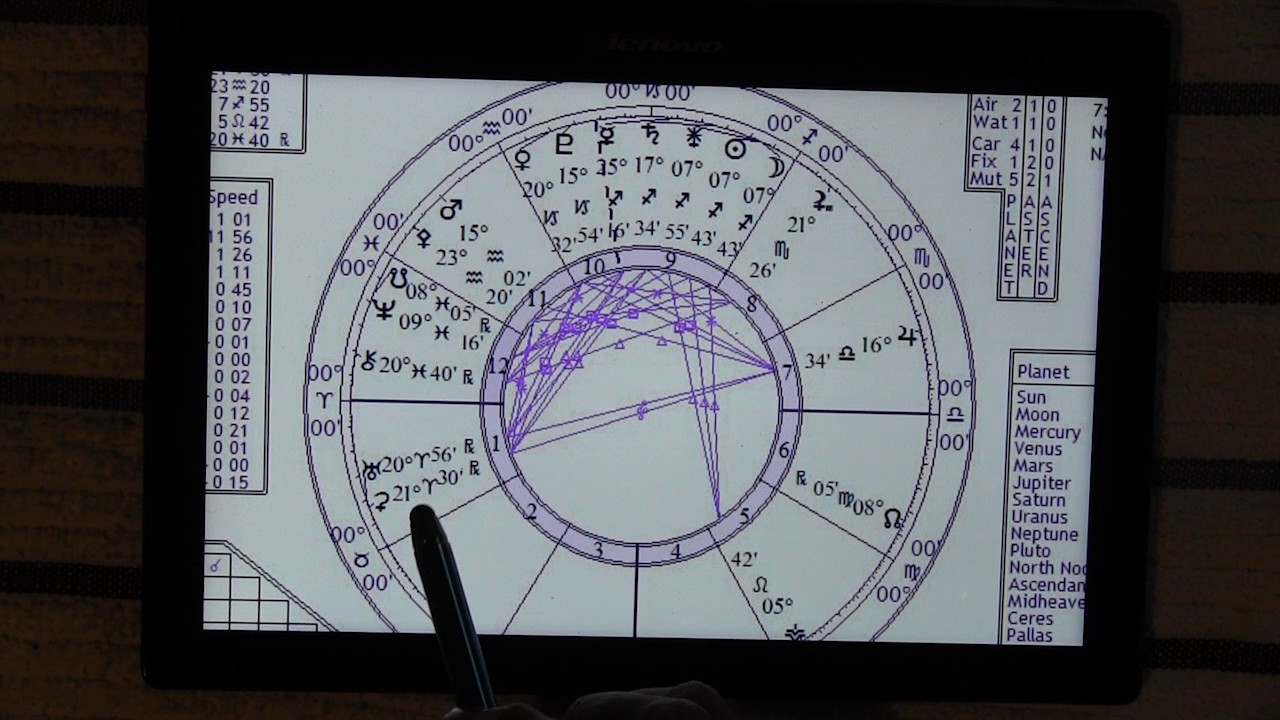 lenovo
23 ♒ 20
7 ♐ 55
5 ♌ 42
20 ♓ 40 ℞
Speed
1 01
11 56
1 26
1 11
0 45
0 10
0 07
0 01
0 00
0 02
0 04
0 12
0 21
0 01
0 00
0 15
Air 2 1 0
Wat 1 1 0
Car 4 1 0
Fix 1 2 0
Mut 5 2 1
PLANET
ASTER
ASCEND
00° ♑ 00'
00° ♐ 00'
00° ♏ 00'
00° ♎ 00'
00° ♍ 00'
00° ♉ 00'
00° ♈ 00'
00° ♓ 00'
00° ♒ 00'
♀ 20° ♑ 32'
♇ 15° ♑ 54'
☿ 25° ♐ 16'
♄ 17° ♐ 34'
07° ♐ 55'
☉ 07° ♐ 43'
☽ 07° ♐ 43'
21° ♏ 26'
♃ 16° ♎ 34'
☊ 08° ♍ 05' ℞
05° ♌ 42'
⚳ 21° ♈ 30' ℞
♅ 20° ♈ 56' ℞
⚷ 20° ♓ 40' ℞
♆ 09° ♓ 16'
☋ 08° ♓ 05' ℞
⚴ 23° ♒ 20'
♂ 15° ♒ 02'
1
2
3
4
5
6
7
8
9
10
11
12
Planet
Sun
Moon
Mercury
Venus
Mars
Jupiter
Saturn
Uranus
Neptune
Pluto
North Noo
Ascendan
Midheave
Ceres
Pallas